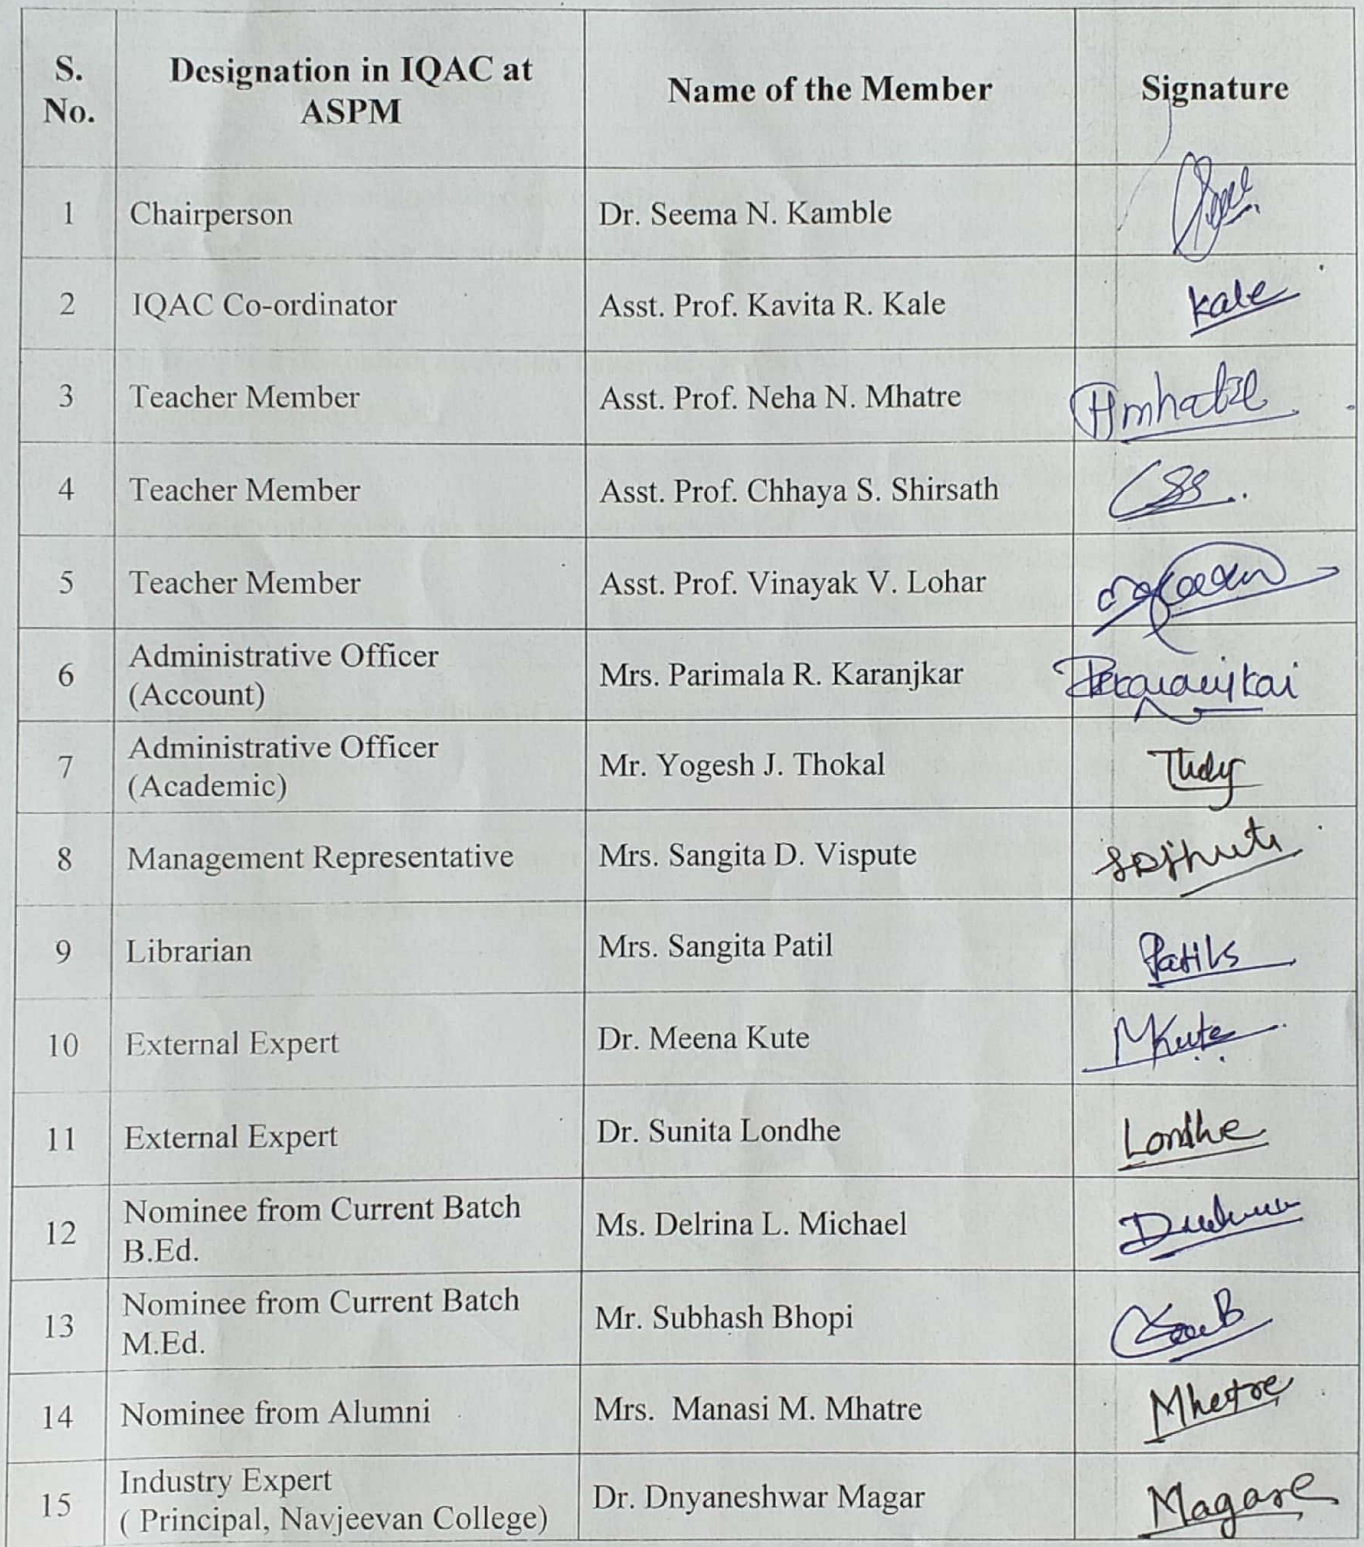 S. No. Designation in IQAC at ASPM Name of the Member Signature
1 Chairperson Dr. Seema N. Kamble
2 IQAC Co-ordinator Asst. Prof. Kavita R. Kale Kale
3 Teacher Member Asst. Prof. Neha N. Mhatre
4 Teacher Member Asst. Prof. Chhaya S. Shirsath
5 Teacher Member Asst. Prof. Vinayak V. Lohar
6 Administrative Officer (Account) Mrs. Parimala R. Karanjkar
7 Administrative Officer (Academic) Mr. Yogesh J. Thokal
8 Management Representative Mrs. Sangita D. Vispute
9 Librarian Mrs. Sangita Patil PatilS
10 External Expert Dr. Meena Kute MKute
11 External Expert Dr. Sunita Londhe Londhe
12 Nominee from Current Batch B.Ed. Ms. Delrina L. Michael
13 Nominee from Current Batch M.Ed. Mr. Subhash Bhopi
14 Nominee from Alumni Mrs. Manasi M. Mhatre Mhetre
15 Industry Expert ( Principal, Navjeevan College) Dr. Dnyaneshwar Magar Magare